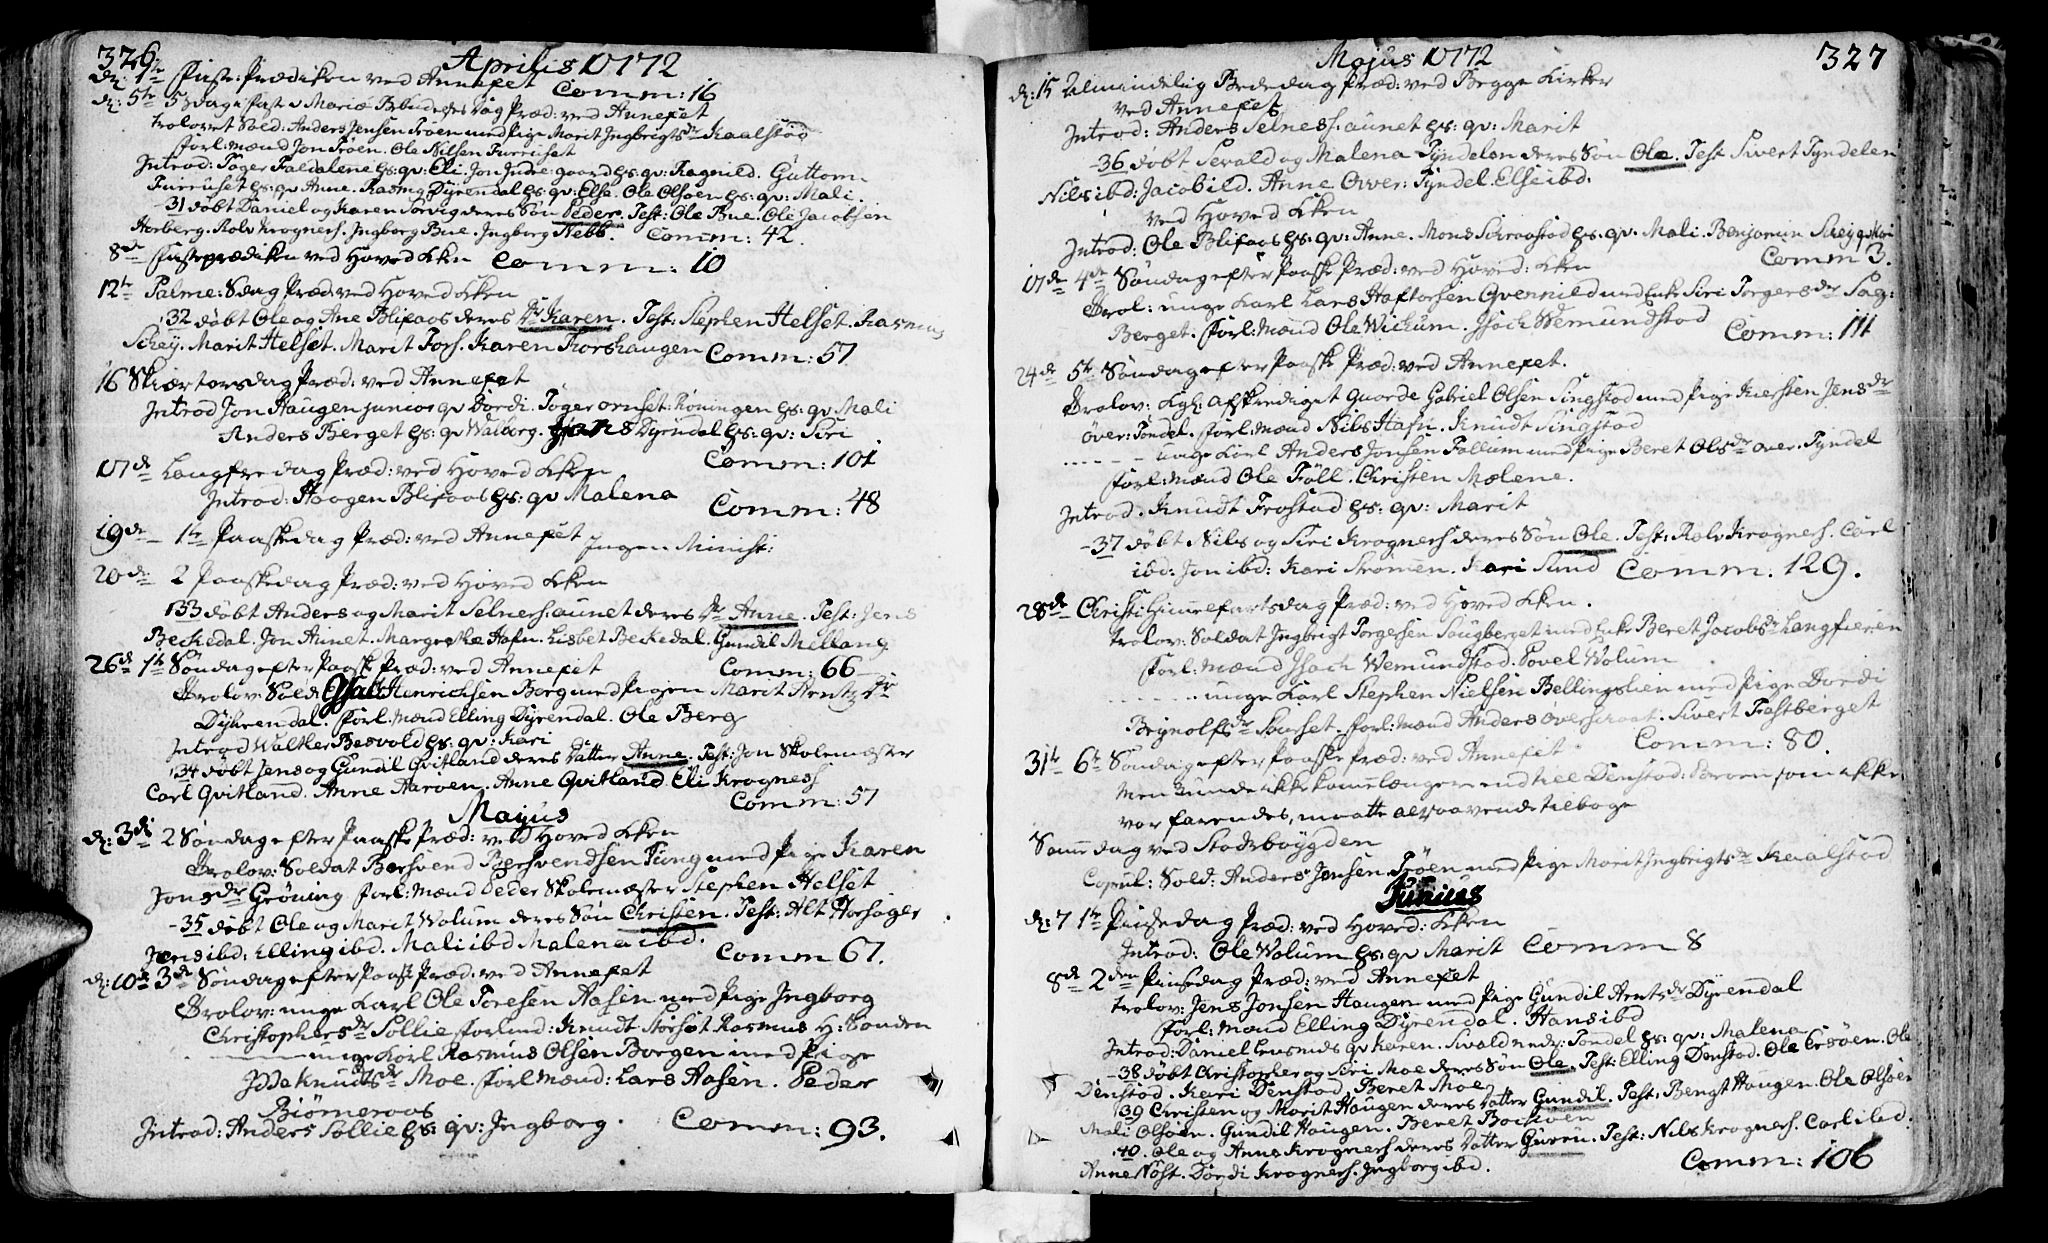 326 Aprilis 1772
d: 1te Faste: Prædiken ved Annexet Comm: 16
d: 5te 5 Sdag i Fast Mariæ Bebudelses Dag Præd: ved Annexet
trolovet Sold: Anders Jensen Trøen med Pige Marit Ingbrigtsdr Kaalstad
forl: Mænd Jon Trøen. Ole Nilsen Furruset
Introd: Toger Faldalene hs: qv: Eli. Jon Indre: gaard hs: qv: Ragnild. Guttorm
Furruset hs: qv: Anne. Rasmg Dyrendal hs: qv: Else. Ole Olsøen hs: qv: Mali.
31 døbt Daniel og Karen Sorvig deres Søn Peder. Test: Ole Bue. Ole Jacobsen
Herberg. Rolv Krogness. Ingborg Bue. Ingborg Nebb. Comm: 42.
8de Fasteprædiken ved Hoved Kken Comm: 10
12te Palme: Sdag Præd: ved Hoved Kken
32 døbt Ole og Ane Blixaas deres Dr Karen. Test: Stephen Helset. Rasmus
Schey. Marit Helset. Marit Fors. Karen Forshaugen Comm: 57
16 Skiærtorsdag Præd: ved Annexet
Introd Jon Haugen junior qv Dordi. Toger ornset: Röningen hs: qv Mali
Anders Berget hs: qv Walborg. Hans Dyrendal hs: qv: Siri
Comm: 101
17de Langfredag Præd: ved Hoved Kken
Introd: Haagen Blixaas hs: qv Malena Comm: 48
19de 1te Paaskedag Præd: ved Annexet Ingen Minist:
20de 2 Paaskedag Præd: ved Hoved Kken
33 døbt Anders og Marit Selness: aunet deres Dr Anne. Test: Jens
Beckedal. Jon Aunet. Margretha Hafn. Lisbet Beckedal. Gundil Mellang
26de 1te Søndag efter Paaske Præd: ved Annexet Comm: 66
Trolov: Sold: Hinrichsen Berg med Pigen Marit Arentz Dr
Dyhrendal. forl: Mænd Elling Dyrendal. Ole Berg
Introd Walther Besvold hs: qv: Kari
34 døbt Jens og Gundil Qvitland deres Datter Anne. Test: Jon Skolemester
Carl Qvitland. Anne Aarøen. Anne Qvitland Eli Krogness
Comm: 57
Majus
d: 3de 2 Søndag efter Paaske Præd: ved Hoved Kken
Trolov: Soldat Bersvend Bersvendsen Tiung med Pige Karen
Jonsdr Grøning forl: Mænd Peder Skolemester Stephen Helset
35 døbt Ole og Marit Wolum deres Søn Christen. Test: Alt Horsager
Jens ibd: Elling ibd. Mali ibd Malena ibd. Comm 67.
d: 10de 3de Søndag efter Paask Præd: ved Annexet
Trolov: unge Karl Ole Toresen Aasen med Pige Ingborg
Christophersdr Sollie forlmd: Knudt Storset Rasmus H: Sonden
unge Karl Rasmus Olsen Borgen med Pige
Idde Knudtsdr Moe. forl Mænd: Lars Aasen. Peder
Biørneraas
Introd: Anders Sollie hs: qv: Ingborg. Comm: 93.
Majus 1772 327
d: 15 Almindelig Bededag Præd: ved Begge Kirker
ved Annexet
Introd: Anders Selness: aunet hs: qv: Marit
36 døbt Sevald og Malena Tyndelen deres Søn Ole. Test Sivert Tyndelen
Nils ibd: Jacob ild. Anne Over: Tyndel. Else ibd.
Ved Hoved Kken
Introd: Ole Blixaas hs: qv: Anne. Mons Schraastad hs: qv. Mali. Benjamin Schey q Kari
Comm 3.
17de 4de Søndag efter Paaske Præd: ved Hoved: Kken
Trol: unge Karl Lars Haftorsen Qvernild med Enke Siri Torgersdr Sag:
Berget. forl: Mænd Ole Wichum. Isach Wemundstad Comm: 111
24de 5te Søndag efter Paaske Præd: ved Annexet.
Trolov: Kgl: Afskediget Guarde Gabriel Olsen Singstad med Pige Kiersten Jensdr
över: Töndel. forl: Mænd Nils Hafn. Knudt Singstad
unge Karl Anders Jonsen Follum med Pige Beret Olsdr over. Tyndel
forl: Mænd Ole Föll. Christen Molene.
Introd. Knudt Frostad hs: qv: Marit
37 døbt Nils og Siri Krogness deres Søn Ole. Test: Rolv Krogness. Carl
ibd: Jon ibd: Kari Stromen. Kari Sund Comm. 129.
28de Christi Himmelfartsdag Præd: ved Hoved Kken.
trolov: Soldat Ingbrigt Torgersen Saugberget med Enke Beret Jacobsdr Langfieren
forl: Mænd Isach Wemundstad. Povel Wolum
unge Karl Stephen Nielsen Bellingslien med Pige Dordi
Brynolfsdr Sourset. forl: Mænd Anders Överskraat. Sivert Frostberget
31te 6te Søndag efter Paaske Præd: ved Annexet Comm: 80.
Men kunde ikke kome længere end till Denstad. Færren som ikke
var farendes, maatte altsaa vende tilbage
Samme dag ved Stadsbøygden
Copul: Sold: Anders Jensen Trøen med Pige Marit Ingbrigtsdr Kaalstad
Junius
d: 7 1te Pinsedag Præd: ved Hoved: Kken
Introd: Ole Wolum hs: qv Marit Comm 8
8de 2den Pinsedag Præd: ved Annexet
trolov: Jens Jonsen Haugen med Pige Gundil Arntsdr Dyrendal
forl: Mænd Elling Dyrendal. Hans ibd
Introd: Daniel qv Karen. Sivald nedr: Töndel hs: qv: Malena
38 døbt Christopher og Siri Moe deres Søn Ole. Test: Elling Denstad. Ole Crsøen. Ole
Denstad. Kari Denstad. Beret Moe
39 Christen og Marit Haugen deres Datter Gundil. Test: Bengt Haugen. Ole Olsøen
Mali Olsøen. Gundil Haugen. Beret
40. Ole og Anne Krogness deres Datter Guren. Test: Nils Krogness. Carl ibd:
Anne Nöst. Dordi Krogness. Ingborg ibd. Comm: 106